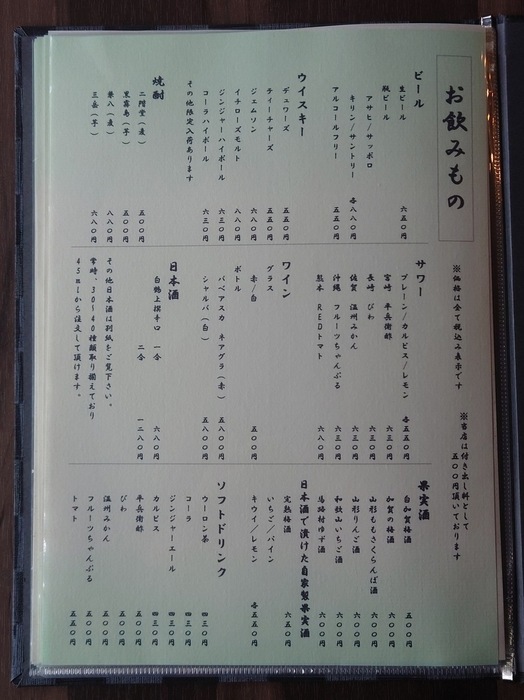 お飲みもの
※価格は全て税込み表示です
※当店は付き出し料として
五〇〇円頂いております
ビール
生ビール 六五〇円
瓶ビール
アサヒ/サッポロ
キリン/サントリー 各八八〇円
アルコールフリー 五五〇円
ウイスキー
デュワーズ 五五〇円
ティーチャーズ 五五〇円
ジェムソン 六八〇円
イチローズモルト 八八〇円
ジンジャーハイボール 六三〇円
コーラハイボール 六三〇円
その他限定入荷あります
焼酎
二階堂(麦) 五〇〇円
黒霧島(芋) 五〇〇円
兼八(麦) 八八〇円
三岳(芋) 六八〇円
サワー
プレーン/カルピス/レモン 各五五〇円
宮崎 平兵衛酢 六三〇円
長崎 びわ 六三〇円
佐賀 温州みかん 六三〇円
沖縄 フルーツちゃんぷる 六三〇円
熊本 REDトマト 六八〇円
ワイン
グラス
赤/白 五〇〇円
ボトル
バベアスカ ネアグラ(赤) 五八〇〇円
シャルバ(白) 五八〇〇円
日本酒
白鶴上撰辛口 一合 六八〇円
二合 一二八〇円
その他日本酒は別紙をご覧下さい。
常時、30〜40種類取り揃えており
45mlから注文して頂けます。
果実酒
白加賀梅酒 五〇〇円
加賀の梅酒 六〇〇円
山形ももさくらんぼ酒 六〇〇円
山形りんご酒 六〇〇円
和歌山いちご酒 六〇〇円
馬路村ゆず酒 六〇〇円
日本酒で漬けた自家製果実酒
完熟梅酒 六五〇円
いちご/パイン
キウイ/レモン 各五五〇円
ソフトドリンク
ウーロン茶 四三〇円
コーラ 四三〇円
ジンジャーエール 四三〇円
カルピス 四三〇円
平兵衛酢 五〇〇円
びわ 五〇〇円
温州みかん 五〇〇円
フルーツちゃんぷる 五〇〇円
トマト 五五〇円